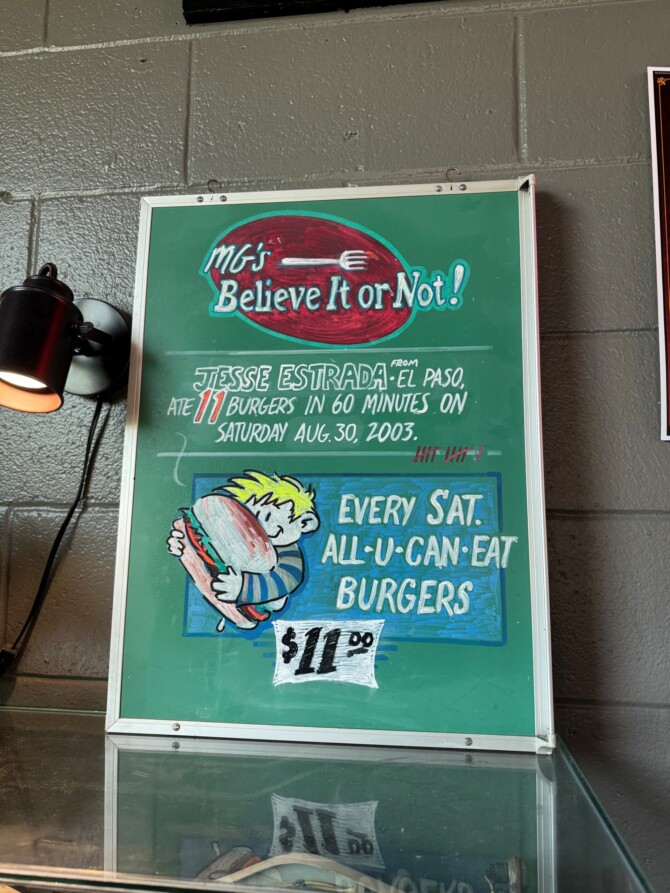 MG's
Believe It or Not!
JESSE ESTRADA · FROM EL PASO,
ATE 11 BURGERS IN 60 MINUTES ON
SATURDAY AUG. 30, 2003.
EVERY SAT.
ALL·U·CAN·EAT
BURGERS
$11.00